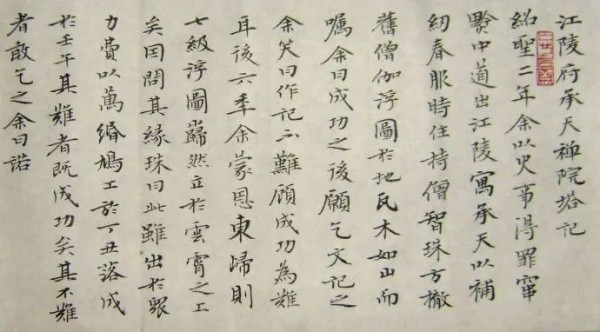 江陵府承天禅院塔記
紹聖二年余以史事得罪竄
黔中道出江陵寓承天以補
紉春服時住持僧智珠方撤
舊僧伽浮圖於地瓦木如山而
囑余曰成功之後願乞文記之
余笑曰作記不難顧成功為難
耳後六秊余蒙恩東歸則
七級浮圖巋然立於雲霄之上
矣因問其緣珠曰此雖出於眾
力費以萬緡鳩工於丁丑落成
於壬午其難者既成功矣其不難
者敢乞之余曰諾